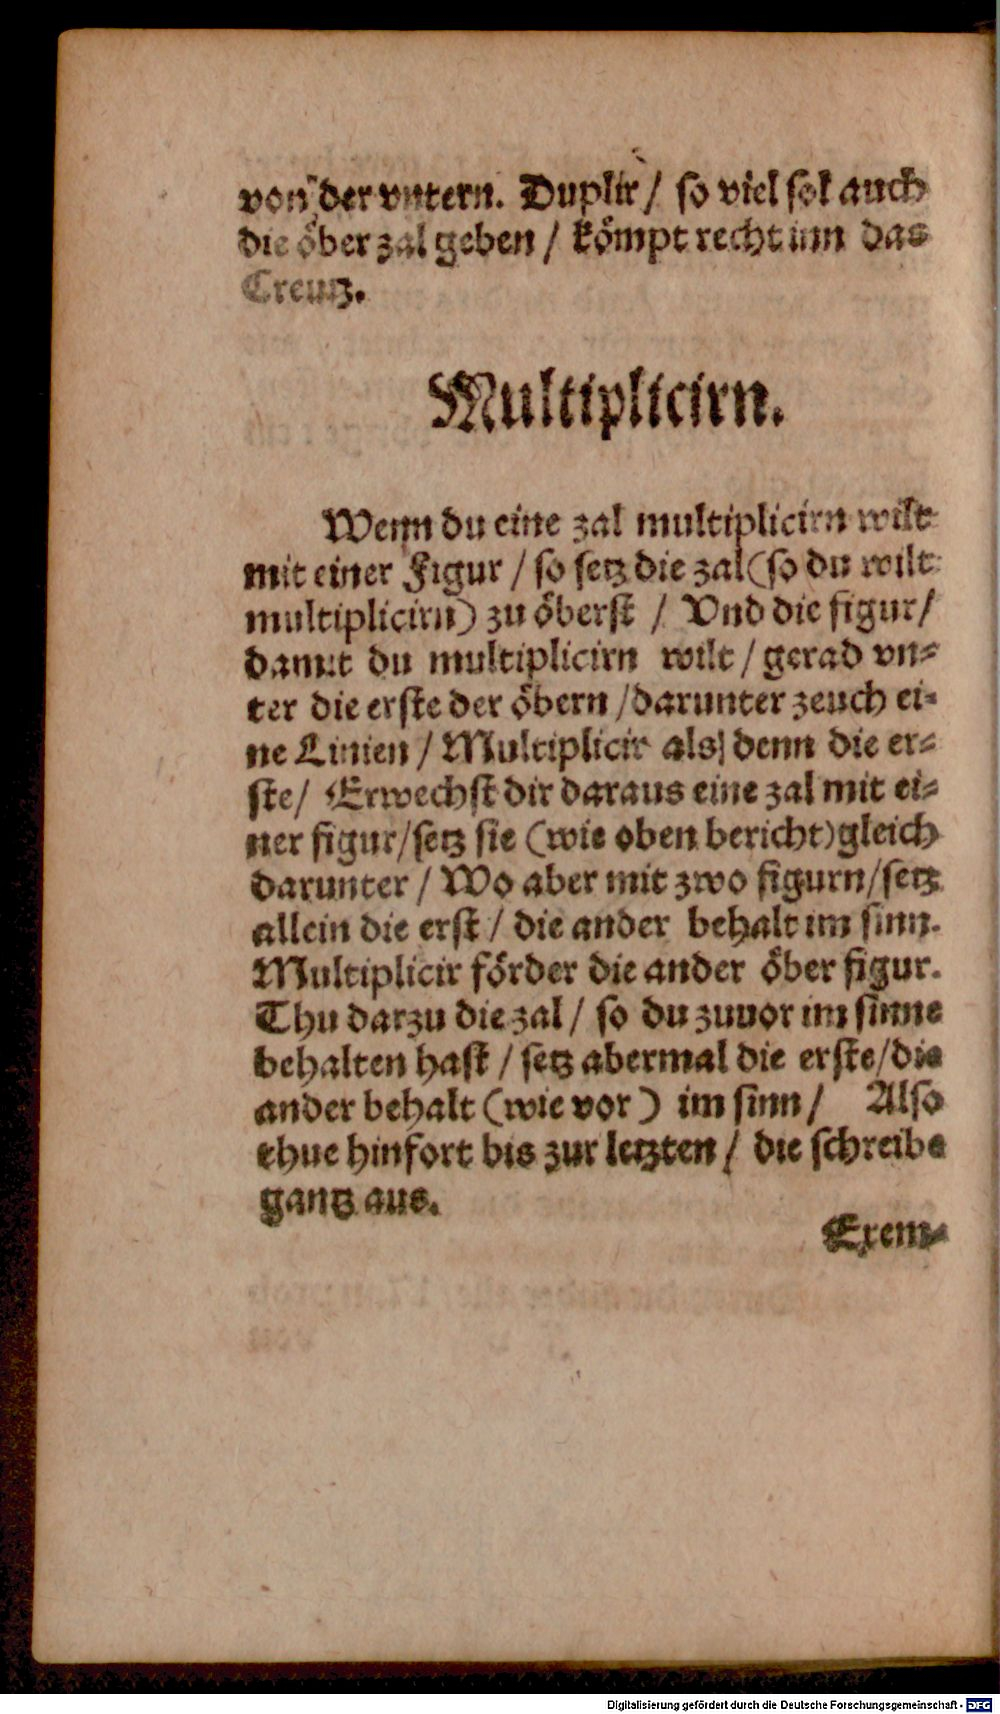 von der vntern. Duplir / so viel sol auch
die öber zal geben / kömpt recht inn das
Creutz.
Multiplicirn.
Wenn du eine zal multiplicirn wilt
mit einer Figur / so setz die zal (so du wilt
multiplicirn) zu öberst / Vnd die figur /
damit du multiplicirn wilt / gerad vn⸗
ter die erste der öbern / darunter zeuch ei⸗
ne Linien / Multiplicir als denn die er⸗
ste / Erwechst dir daraus eine zal mit ei⸗
ner figur / setz sie (wie oben bericht) gleich
darunter / Wo aber mit zwo figurn / setz
allein die erst / die ander behalt im sinn.
Multiplicir förder die ander öber figur.
Thu darzu die zal / so du zuuor im sinne
behalten hast / setz abermal die erste / die
ander behalt (wie vor) im sinn / Also
thue hinfort bis zur letzten / die schreibe
gantz aus.
Exem⸗
Digitalisierung gefördert durch die Deutsche Forschungsgemeinschaft - DFG